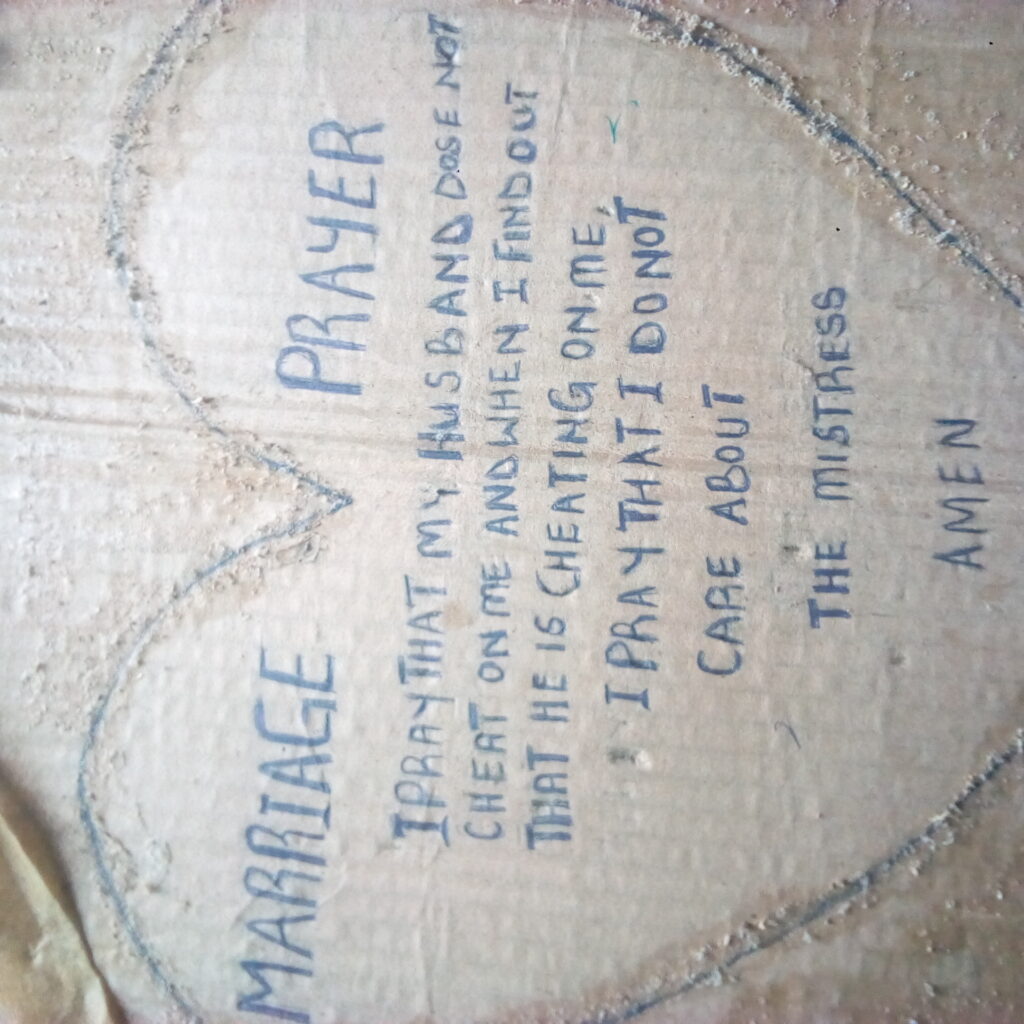 MARRIAGE PRAYER
I PRAY THAT MY HUSBAND DOSE NOT
CHEAT ON ME AND WHEN I FIND OUT
THAT HE IS CHEATING ON ME,
I PRAY THAT I DO NOT
CARE ABOUT
THE MISTRESS
AMEN